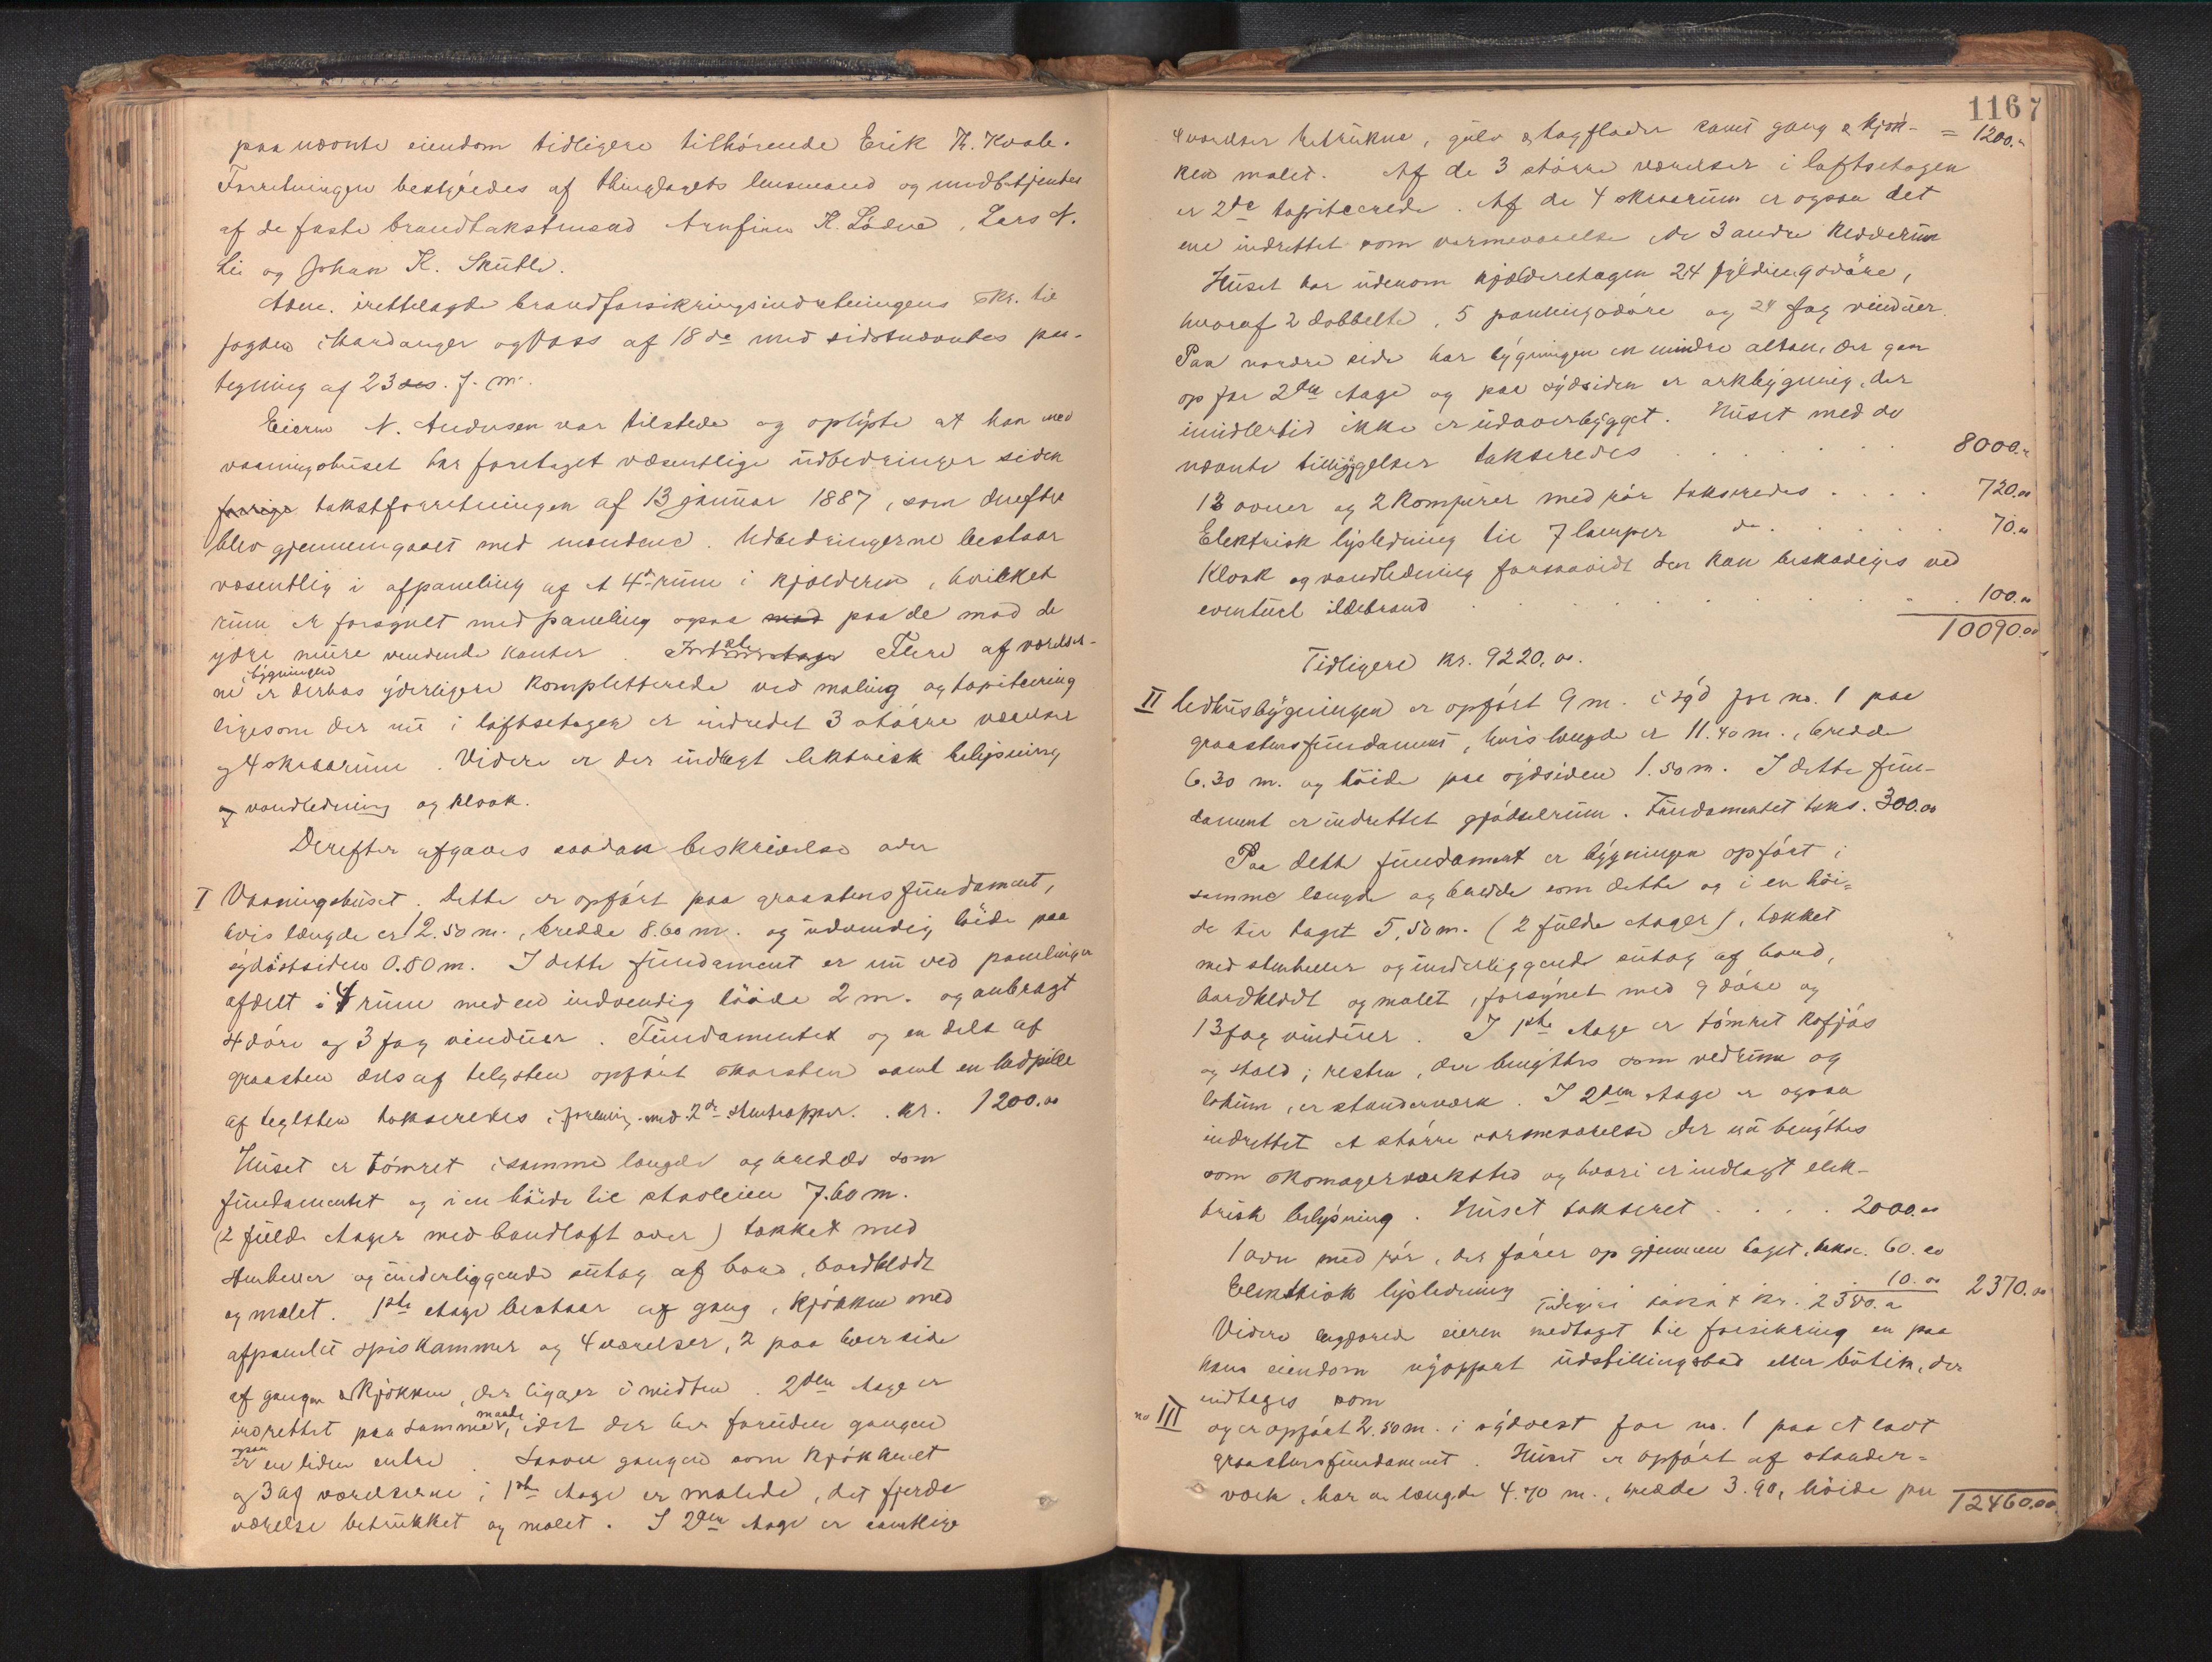 paa nævnte eiendom tidligere tilhörende Erik K. Kvale.
Forretningen bestyredes af thinglagets lensmand og medbetjentes
af de faste brandtakstmænd Arnfinn K. Lödve, Lars N.
Lie og Johan K. Skutle.
Adm. irettelagde brandforsikringsindretningens skr. til
fogden i Hardanger og Voss af 18 de med sidstnævntes paa-
tegning af 23 ds. f. m.
Eieren N. Andersen var tilstede og oplyste at han med
vaaningshuset har foretaget væsentlige udbedringer siden
forrige takstforretningen af 13 januar 1887, som derefter
blev gjennemgaaet med mændene. Udbedringerne bestaar
væsentlig i afpaneling af et 4de rum i kjælderen, hvilket
rum er forsynet med paneling ogsaa mod paa de mod de
ydre mure vendende kanter. Flere af værelser-
ne i bygningen er derhos yderligere kompletterede ved maling og tapitsering
ligesom der nu i loftsetagen er indredet 3 större værelser
og 4 skraarum. Videre er der indlagt elektrisk belysning
og vandledning og kloak.
Derefter afgaves saadan beskrivelse over
I Vaaningshuset. Dette er opfört paa graastensfundament,
hvis længde er 12.50 m., bredde 8.60 m. og udvendig höide paa
sydöstsiden 0.80 m. I dette fundament er nu ved panelinger
afdelt i 4 rum med en indvendig höide 2 m. og anbragt
4 döre og 3 fag vinduer. Fundamentet og en dels af
graasten dels af teglsten opfört skorsten samt en bedpille
af teglsten takseredes i forening med 2de stentrapper. kr. 1200.00
Huset er tömret i samme længde og bredde som
fundamentet og i en höide til stavleien 7.60 m.
(2 fulde etager med bandloft over) tækket med
stenheller og underliggende sutag af bord, bordklædt
og malet. 1ste etage bestaar af gang, kjökken med
afpanelet spiskammer og 4 værelser, 2 paa hver side
af gangen & kjökken, der ligger i midten. 2den etage er
indrettet paa samme maade, idet der her foruden gangen
ogsaa er en liden entre. Saavel gangene som kjökkenet
og 3 af værelserne i 1ste etage er malede, det fjerde
værelse betrukket og malet. I 2den etage er samtlige
1167
4 værelser betrukne, gulv & tagflader samt gang & kjök- = 1200.00
ken malet. Af de 3 större værelser i loftsetagen
er 2de tapitserede. Af de 4 skraarum er ogsaa det
ene indrettet som varmeværelse de 3 andre klæderum
Huset har udenom kjælderetagen 24 fyldingsdöre,
hvoraf 2 dobbelte, 5 panelingsdöre og 24 fag vinduer.
Paa nordre side har bygningen en mindre altan, der gaar
op for 2den etage og paa sydsiden er arkbygning, der
imidlertid ikke er udoverbygget. Huset med de
nævnte tilbyggelser takseredes 8000.00
13 ovner og 2 komfurer med rör takseredes 720.00
Elektrisk lysledning til 7 lamper do. 70.00
Kloak og vandledning forsaavidt den kan beskadiges ved
eventuel ildebrand 100.00
10090.00
Tidligere kr. 9220,00.
II Uedhusbygningen er opfört 9 m. i syd for no. 1 paa
graastensfundament, hvis længde er 11.40 m., bredde
6.30 m. og höide paa sydsiden 1.50 m. I dette fun-
dament er indrettet gjödselrum. Fundamentet taks. 300.00
Paa dette fundament er bygningen opfört i
samme længde og bredde som dette og i en höi-
de til taget 5,50 m. (2 fulde etager), tækket
med stenheller og underliggende sutag af bord,
bordklædt og malet, forsynet med 9 döre og
13 fag vinduer. I 1ste etage er tömret kofjös
og stald; resten, der benyttes som vedrum og
lokum, er standerværk. I 2den etage er ogsaa
indrettet et större varmeværelse der nu benyttes
som skomagerværksted og hvori er indlagt elek-
trisk belysning. Huset takseret 2000.00
1 ovn med rör, der förer op gjennem taget, takse. 60.00
Elektrisk lysledning 10.00 2370.00
Tidligere takst kr. 2380.00
Videre begjærede eieren medtaget til forsikring en paa
hans eiendom nyopfört udstillingsbod eller butik, der
indtages som
no III og er opfört 2.50 m. i sydvest for no. 1 paa et lavt
graastensfundament. Huset er opfört af stander-
værk, har en længde 4.70 m., bredde 3.90, höide paa 12460.00